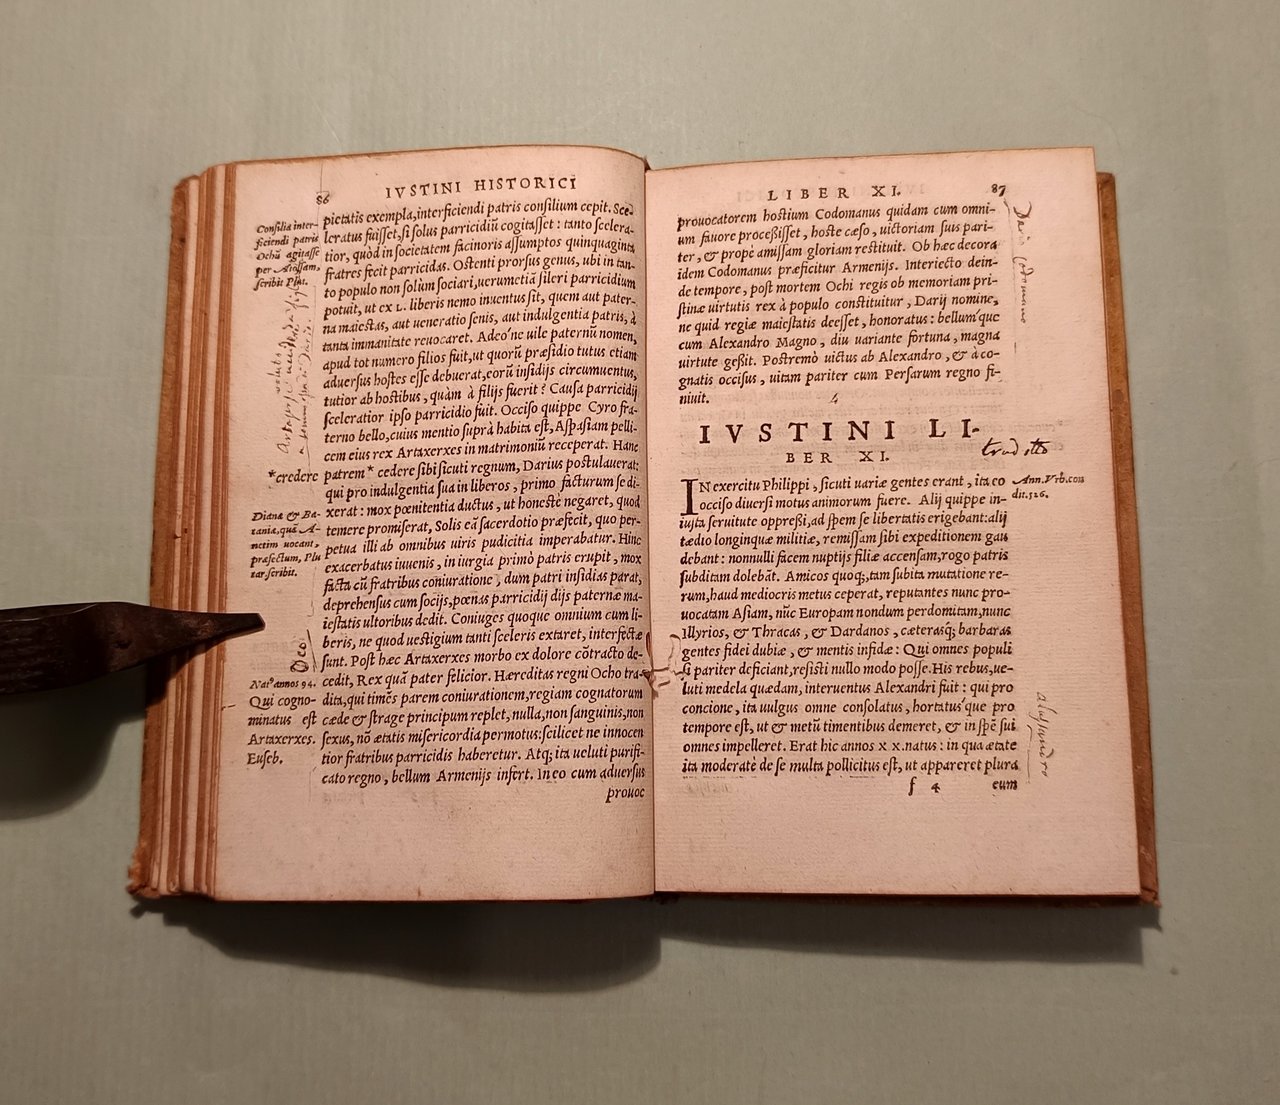 86
IVSTINI HISTORICI
pietatis exempla,interficiendi patris consilium cepit. Sce-
leratus fuisset,si solus parricidiũ cogitasset : tanto scelera-
tior, quòd in societatem facinoris assumptos quinquaginta
fratres fecit parricidas. Ostenti prorsus genus, ubi in tan-
to populo non solum sociari,uerumetiã sileri parricidium
potuit, ut ex L. liberis nemo inuentus sit, quem aut pater-
na maiestas, aut ueneratio senis, aut indulgentia patris, à
tanta immanitate reuocaret. Adeo'ne uile paternũ nomen,
apud tot numero filios fuit,ut quorũ præsidio tutus etiam
aduersus hostes esse debuerat,eorũ insidijs circumuentus,
tutior ab hostibus, quàm à filijs fuerit ? Causa parricidij
sceleratior ipso parricidio fuit. Occiso quippe Cyro fra-
terno bello,cuius mentio suprà habita est, Aspasiam pelli-
cem eius rex Artaxerxes in matrimoniũ receperat. Hanc
patrem* cedere sibi sicuti regnum, Darius postulauerat:
qui pro indulgentia sua in liberos, primo facturum se di-
xerat : mox pœnitentia ductus, ut honestè negaret, quod
temere promiserat, Solis eã sacerdotio præfecit, quo per-
petua illi ab omnibus uiris pudicitia imperabatur. Hinc
exacerbatus iuuenis, in iurgia primò patris erupit, mox
facta cũ fratribus coniuratione, dum patri insidias parat,
deprehensus cum socijs,pœnas parricidij dijs paternæ ma-
iestatis ultoribus dedit. Coniuges quoque omnium cum li-
beris, ne quod uestigium tanti sceleris extaret, interfectæ
sunt. Post hæc Artaxerxes morbo ex dolore cõtracto de-
cedit, Rex quã pater felicior. Hæreditas regni Ocho tra-
dita,qui timẽs parem coniurationem,regiam cognatorum
cæde & strage principum replet, nulla,non sanguinis,non
sexus, nõ ætatis misericordia permotus:scilicet ne innocen
tior fratribus parricidis haberetur. Atq; ita ueluti purifi-
cato regno, bellum Armenijs infert. In eo cum aduersus
prouoc
Consilia inter-
ficiendi patris
Ochũ agitasse
per Atossam,
scribit Plut.
*credere
Dianæ & Ba-
taniæ,quã A-
netim uocant,
præfectum, Plu
tar.scribit.
Oco
Nat⁹ annos 94.
Qui cogno-
minatus est
Artaxerxes.
Euseb.
LIBER XI.
87
prouocatorem hostium Codomanus quidam cum omni-
um fauore processisset, hoste cæso, uictoriam suis pari-
ter, & propè amissam gloriam restituit. Ob hæc decora
idem Codomanus præficitur Armenijs. Interiecto dein-
de tempore, post mortem Ochi regis ob memoriam pri-
stinæ uirtutis rex à populo constituitur, Darij nomine,
ne quid regiæ maiestatis deesset, honoratus : bellum'que
cum Alexandro Magno, diu uariante fortuna, magna
uirtute gessit. Postremò uictus ab Alexandro, & à co-
gnatis occisus, uitam pariter cum Persarum regno fi-
niuit.
Dario Codomano
IVSTINI LI-
BER XI.
tradotto
IN exercitu Philippi, sicuti uariæ gentes erant, ita eo
occiso diuersi motus animorum fuere. Alij quippe in-
iusta seruitute oppressi,ad spem se libertatis erigebant:alij
tædio longinquæ militiæ, remissam sibi expeditionem gau
debant: nonnulli facem nuptijs filiæ accensam,rogo patris
subditam dolebãt. Amicos quoq;,tam subita mutatione re-
rum,haud mediocris metus ceperat, reputantes nunc pro-
uocatam Asiam, nũc Europam nondum perdomitam,nunc
Illyrios, & Thracas, & Dardanos, cæterasq; barbaras
gentes fidei dubiæ, & mentis infidæ: Qui omnes populi
si pariter deficiant,resisti nullo modo posse.His rebus,ue-
luti medela quædam, interuentus Alexandri fuit : qui pro
concione, ita uulgus omne consolatus, hortatus'que pro
tempore est, ut & metũ timentibus demeret, & in spẽ sui
omnes impelleret. Erat hic annos xx.natus : in qua ætate
ita moderatè de se multa pollicitus est, ut appareret plura
f 4
eum
Ann.Vrb.con
dit.526.
Alessandro